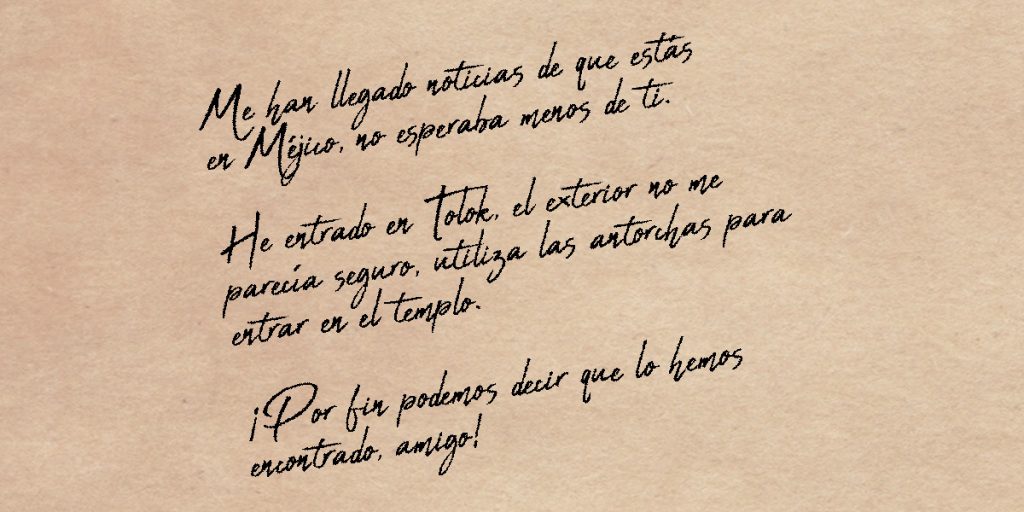 Me han llegado noticias de que estás
en Méjico, no esperaba menos de ti.
He entrado en Tolok, el exterior no me
parecía seguro, utiliza las antorchas para
entrar en el templo.
¡Por fin podemos decir que lo hemos
encontrado, amigo!